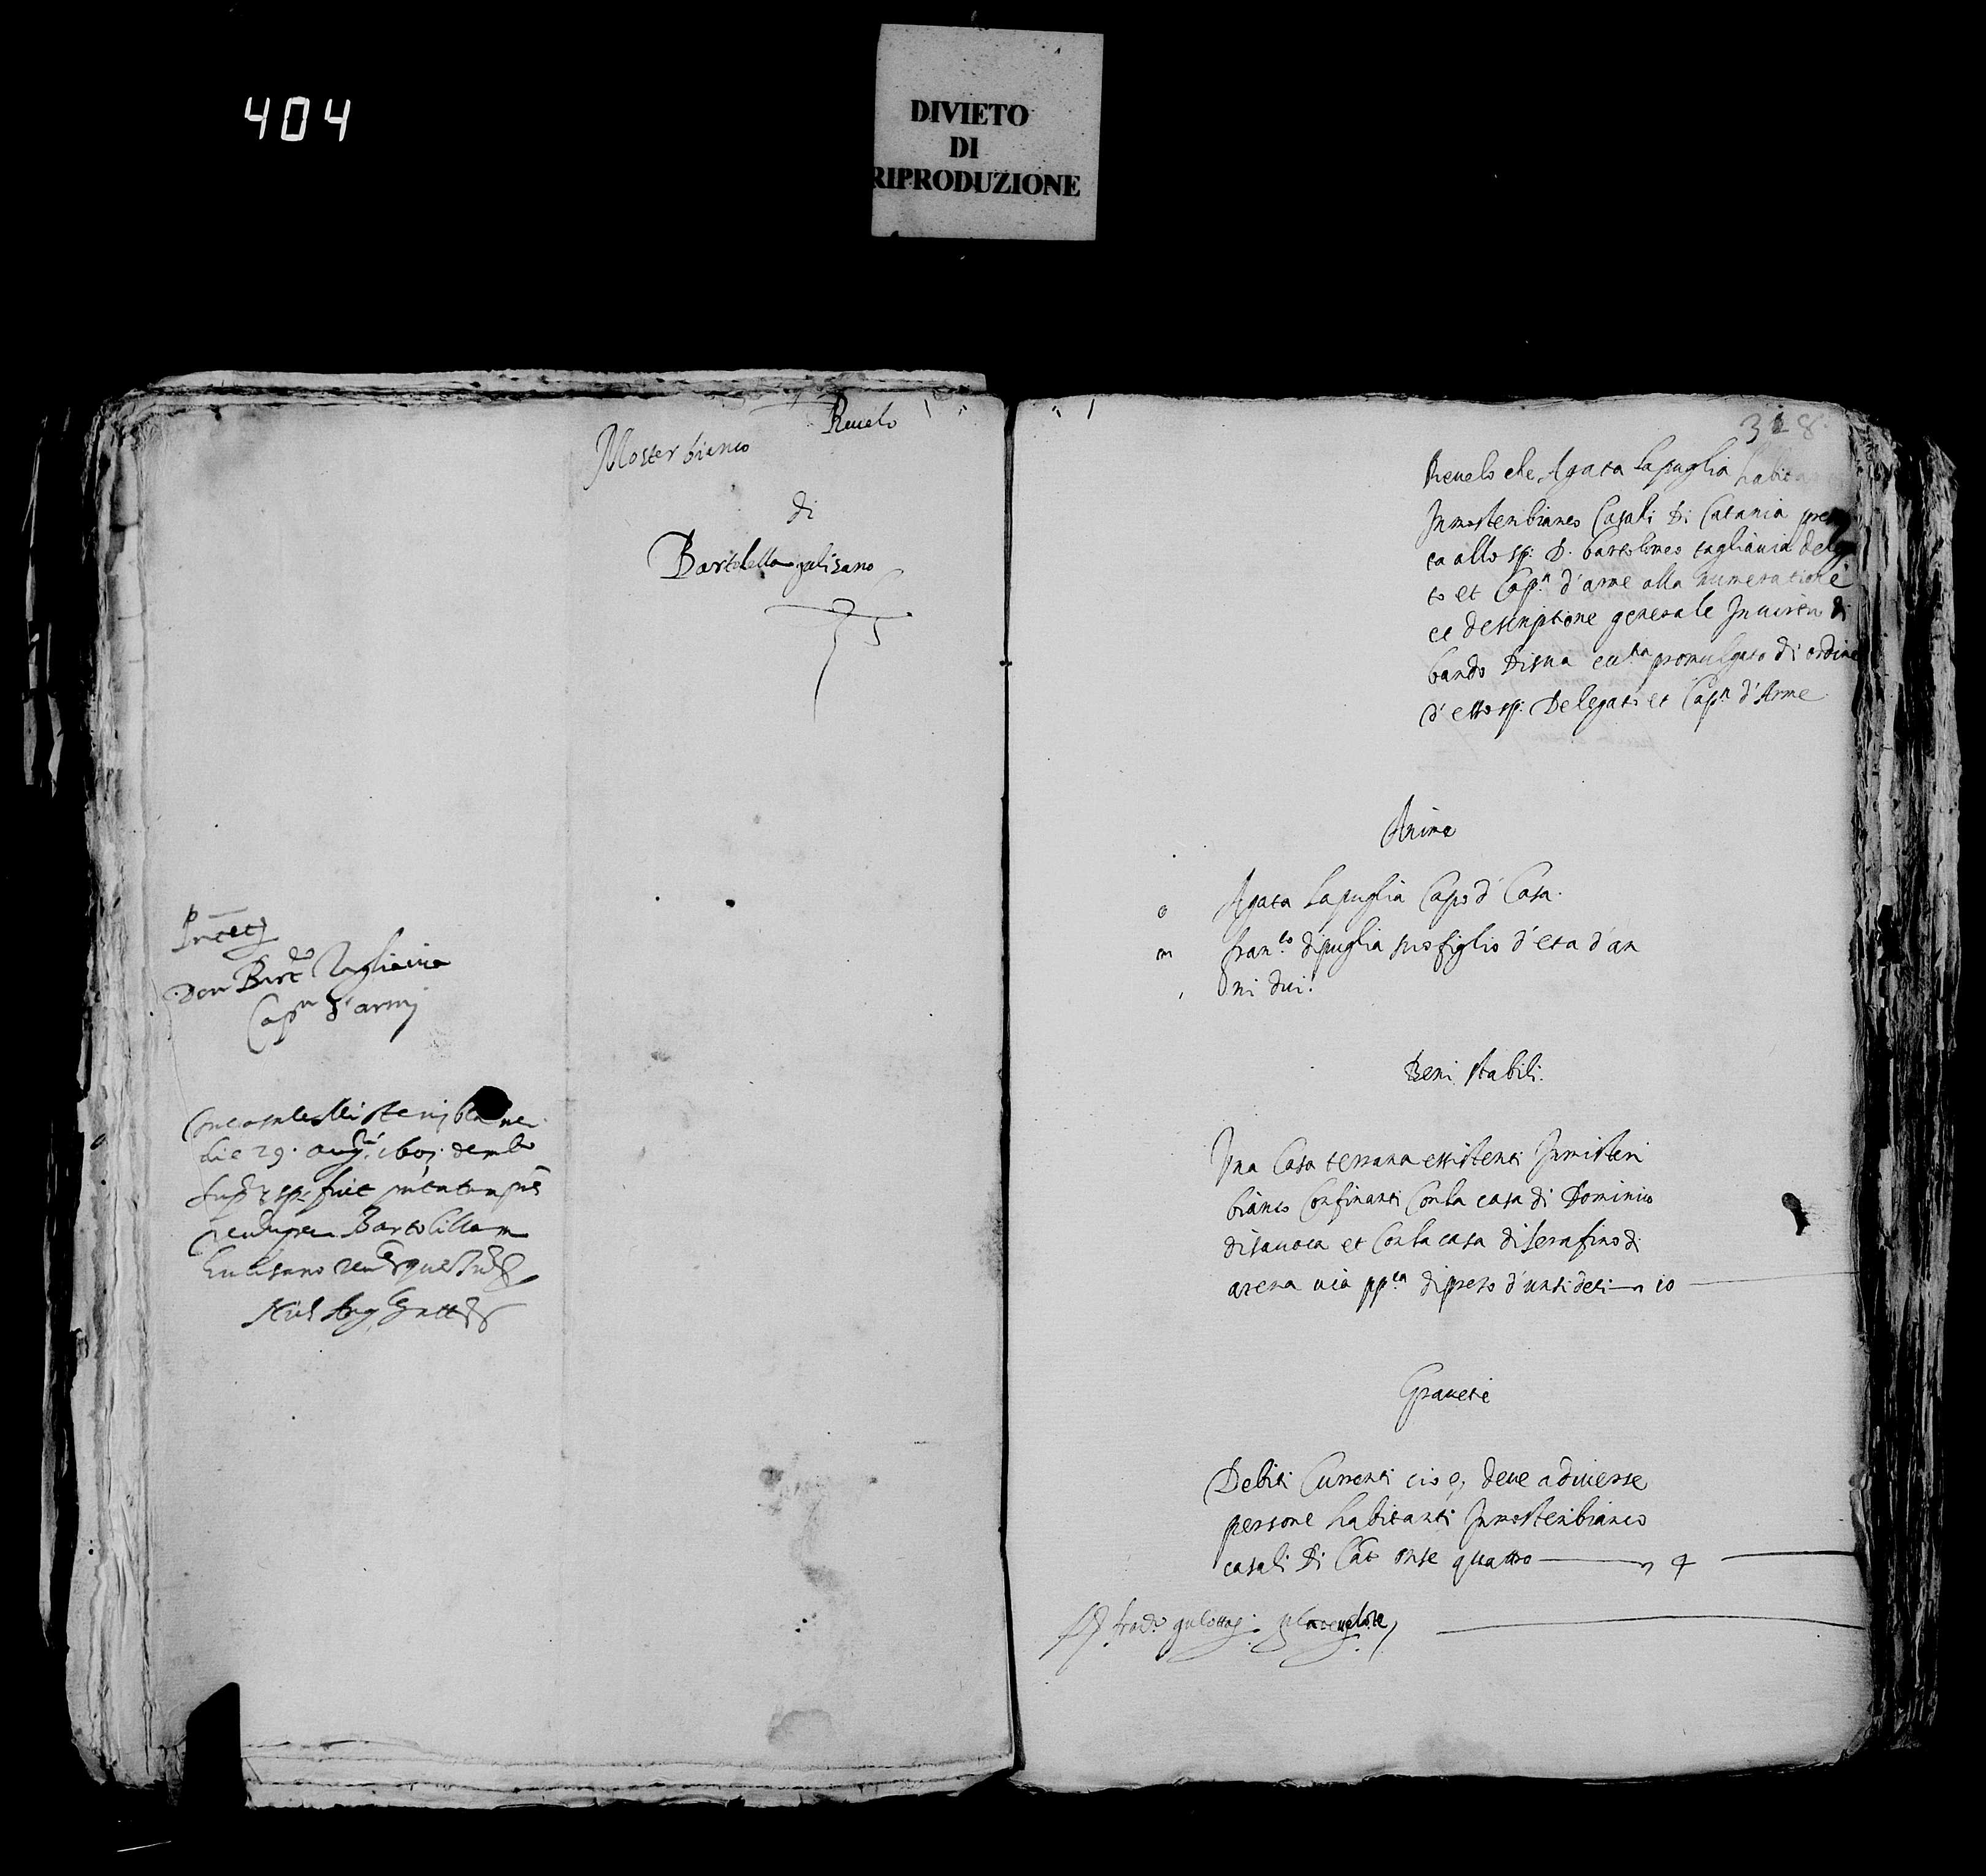 404
DIVIETO
DI
RIPRODUZIONE
Revelo
Moster bianco
di
Bartolella gulisano
Don Bart.eo Tagliavia
Cap.n d'armj
die 29. aug.ti 1607.
sp: fuit
Bartolillam
Gulisano
328.
Revelo che Agata Lapuglia habita
Jnmosteribianco Casali di Catania presen
ta allo sp: D. bartolomeo tagliavia delega
to et Cap.n d'arme alla numeratione
et descriptione generale Jnvirtu di
bando di sua ecc.tia promulgato di ordine
d'esso sp: Delegato et Cap.n d'Arme
Anime
o Agata Lapuglia Capo d' Casa.
m fran.co dipuglia suo figlio d'eta d'an
ni dui.
Beni stabili.
Una Casa terrana essistenti Jnmisteri
bianco Confinanti Conla casa di Dominico
disavoca et Conla casa di serafino di
arena via pp.ca di prezo d'unsi deci 10
Graveze
Debiti Currenti cio q deve adiverse
persone habitanti Jnmosteribianco
casali di Cat. onse quattro 4